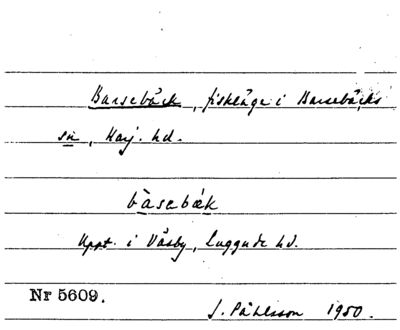 Barsebäck, fiskläge i Barsebäcks
sn, Harj. hd.
bàsebæk
Uppt. i Väsby, Luggude hd.
Nr 5609.
J. Påhlsson 1950.